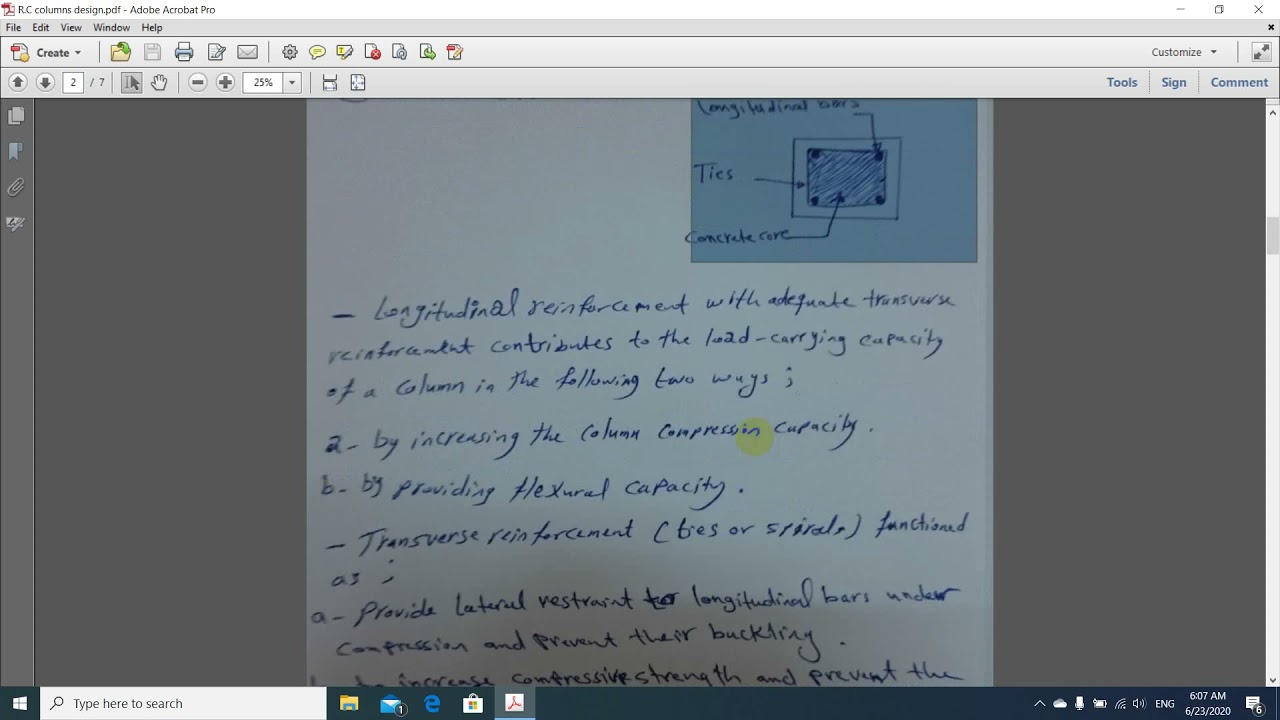 R.C columns design.pdf - Adobe Acrobat Pro
File Edit View Window Help
Create Customize
2 / 7 25% Tools Sign Comment
Longitudinal bars
Ties
Concrete core
- Longitudinal reinforcement with adequate transverse
reinforcement contributes to the load-carrying capacity
of a column in the following two ways ;
a- by increasing the column compression capacity.
b- by providing flexural capacity.
- Transverse reinforcement (ties or spirals) functioned
as ;
a- Provide lateral restraint to longitudinal bars under
compression and prevent their buckling.
to increase compressive strength and prevent the
Type here to search
1
ENG
6:07 AM
6/23/2020
6